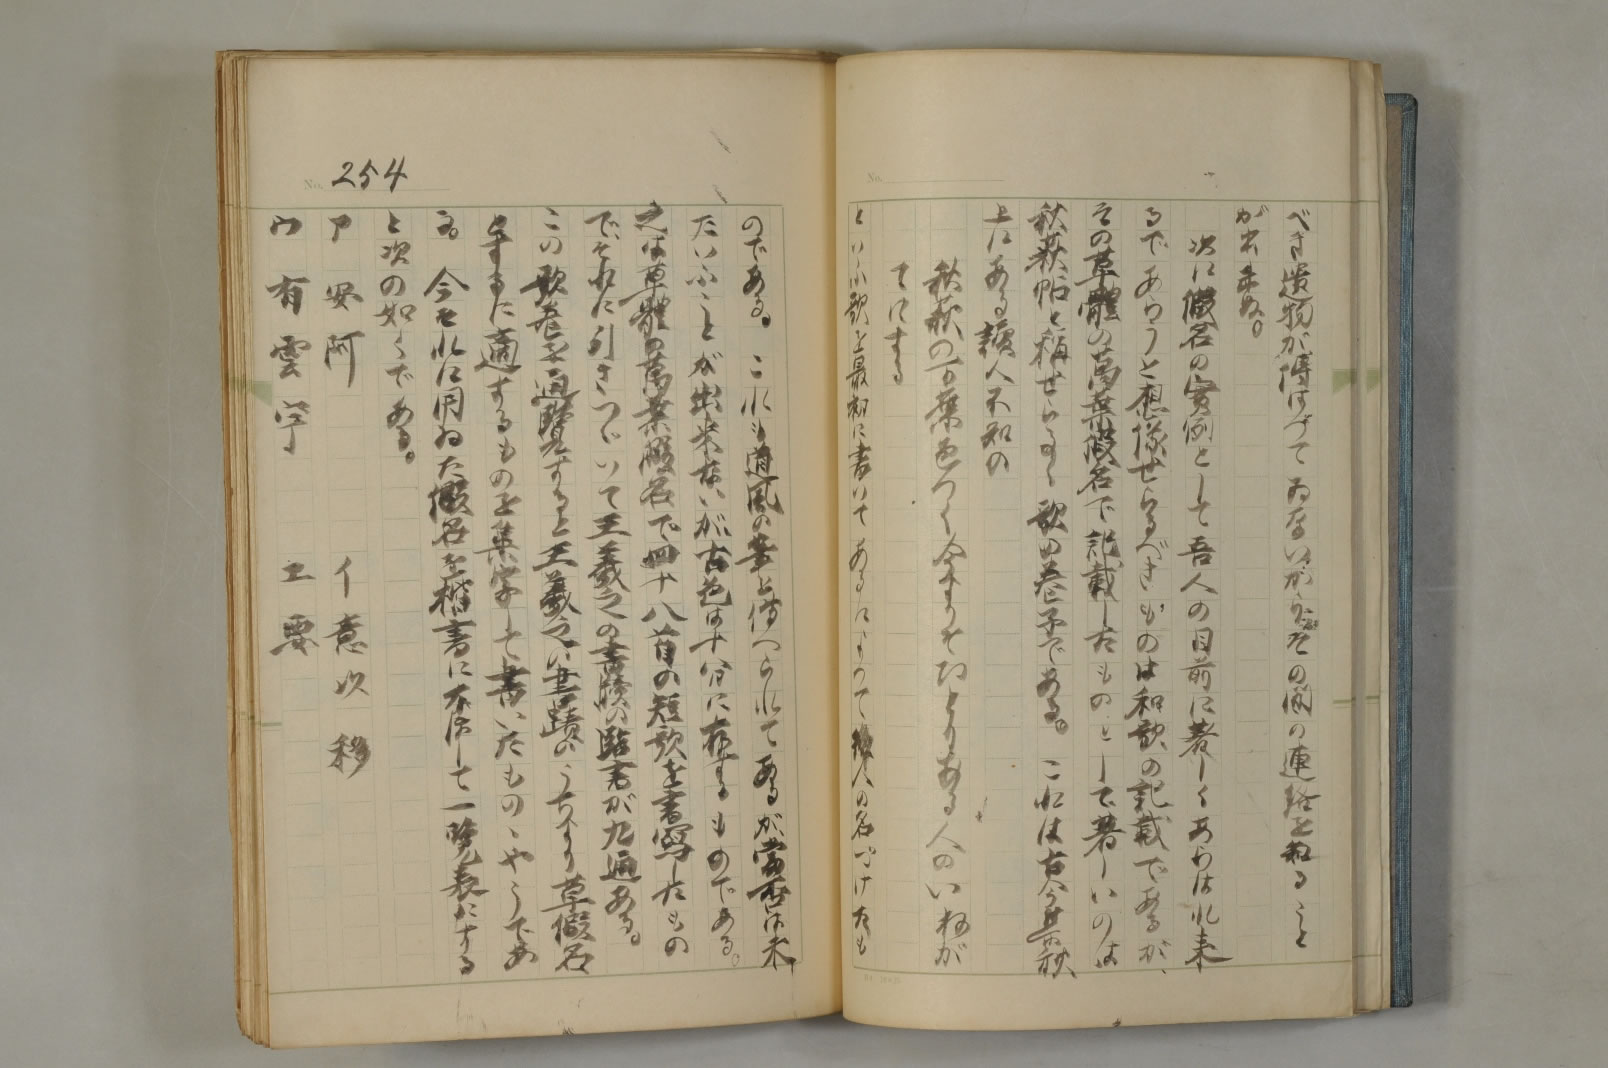 べき遺物が傳はつてゐないからその間の連絡を知ること
が出來ぬ。
次に假名の實例として吾人の目前に著しくあらはれ来
るであらうと想像せらるべきものは和歌の記載であるが、
その草體の萬葉假名で記載したものとして著しいのは
秋萩帖と稱せらるゝ歌の巻子である。これは古今集秋
上にある讀人不知の
秋萩の下葉色つく今よりそひとりある人のいねが
てにする
といふ歌を最初に書いてあるによつて後人の名づけたも
No. 254
のである。これも道風の筆と傳へられてあるが當否は未
だいふことが出来ないが古色は十分に存するものである。
之は草體の萬葉假名で四十八首の短歌を書寫したもの
で、それに引きつゞいて王羲之の書牘の臨書が九通ある。
この歌巻を通覽すると王羲之の書蹟のうちより草假名
とするに適するものを集字して書いたものゝやうであ
る。今それに用ゐた假名を楷書に本にして一覽表にする
と次の如くである。
ア 安 阿 イ 意 以 移
ウ 有 雲 宇 エ 要